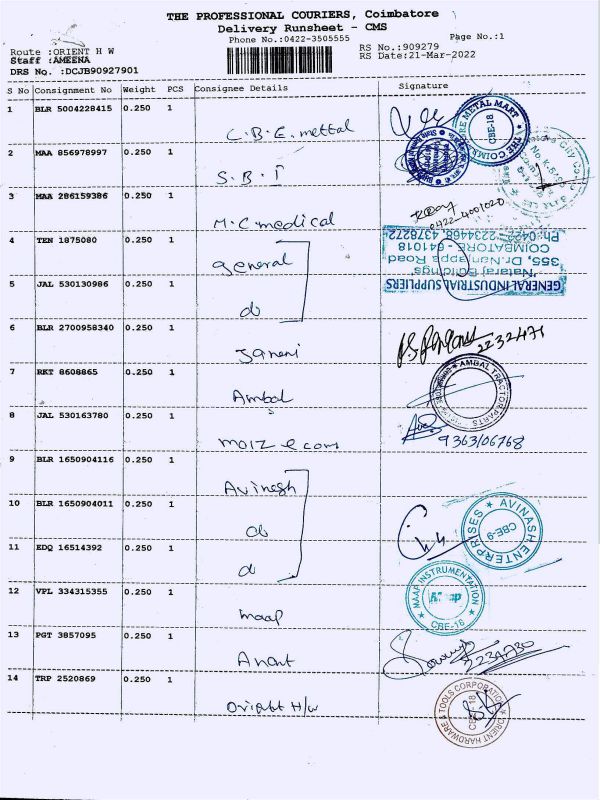 THE PROFESSIONAL COURIERS, Coimbatore
Delivery Runsheet - CMS
Phone No.:0422-3505555
Page No.:1
Route :ORIENT H W
RS No.:909279
Staff :AMEENA
RS Date:21-Mar-2022
DRS No. :DCJB90927901
S No Consignment No Weight PCS Consignee Details Signature
1 BLR 5004228415 0.250 1 C.B.E. mettal
THE COIMBATORE METAL MART CBE-18
2 MAA 856978997 0.250 1 S.B.I
3 MAA 286159386 0.250 1 M.C. medical
0422-4001020
4 TEN 1875080 0.250 1 general
GENERAL INDUSTRIAL SUPPLIERS
'Nataraj Buildings'
355, Dr.Nanjappa Road
COIMBATORE - 641018
Ph:0422-2234468, 4378272
5 JAL 530130986 0.250 1 do
6 BLR 2700958340 0.250 1 Janani
2232471
7 RKT 8608865 0.250 1 Ambal
AMBAL TRACTOR PARTS
8 JAL 530163780 0.250 1 moiz e com
9363106768
9 BLR 1650904116 0.250 1 Avinash
10 BLR 1650904011 0.250 1 do
AVINASH ENTERPRISES CBE-9
11 EDQ 16514392 0.250 1 do
12 VPL 334315355 0.250 1 maap
MAAP INSTRUMENTATION Maap CBE-18
13 PGT 3857095 0.250 1 Anant
2234730
14 TRP 2520869 0.250 1 Orient H/w
ORIENT HARDWARE & TOOLS CORPORATION CBE-18